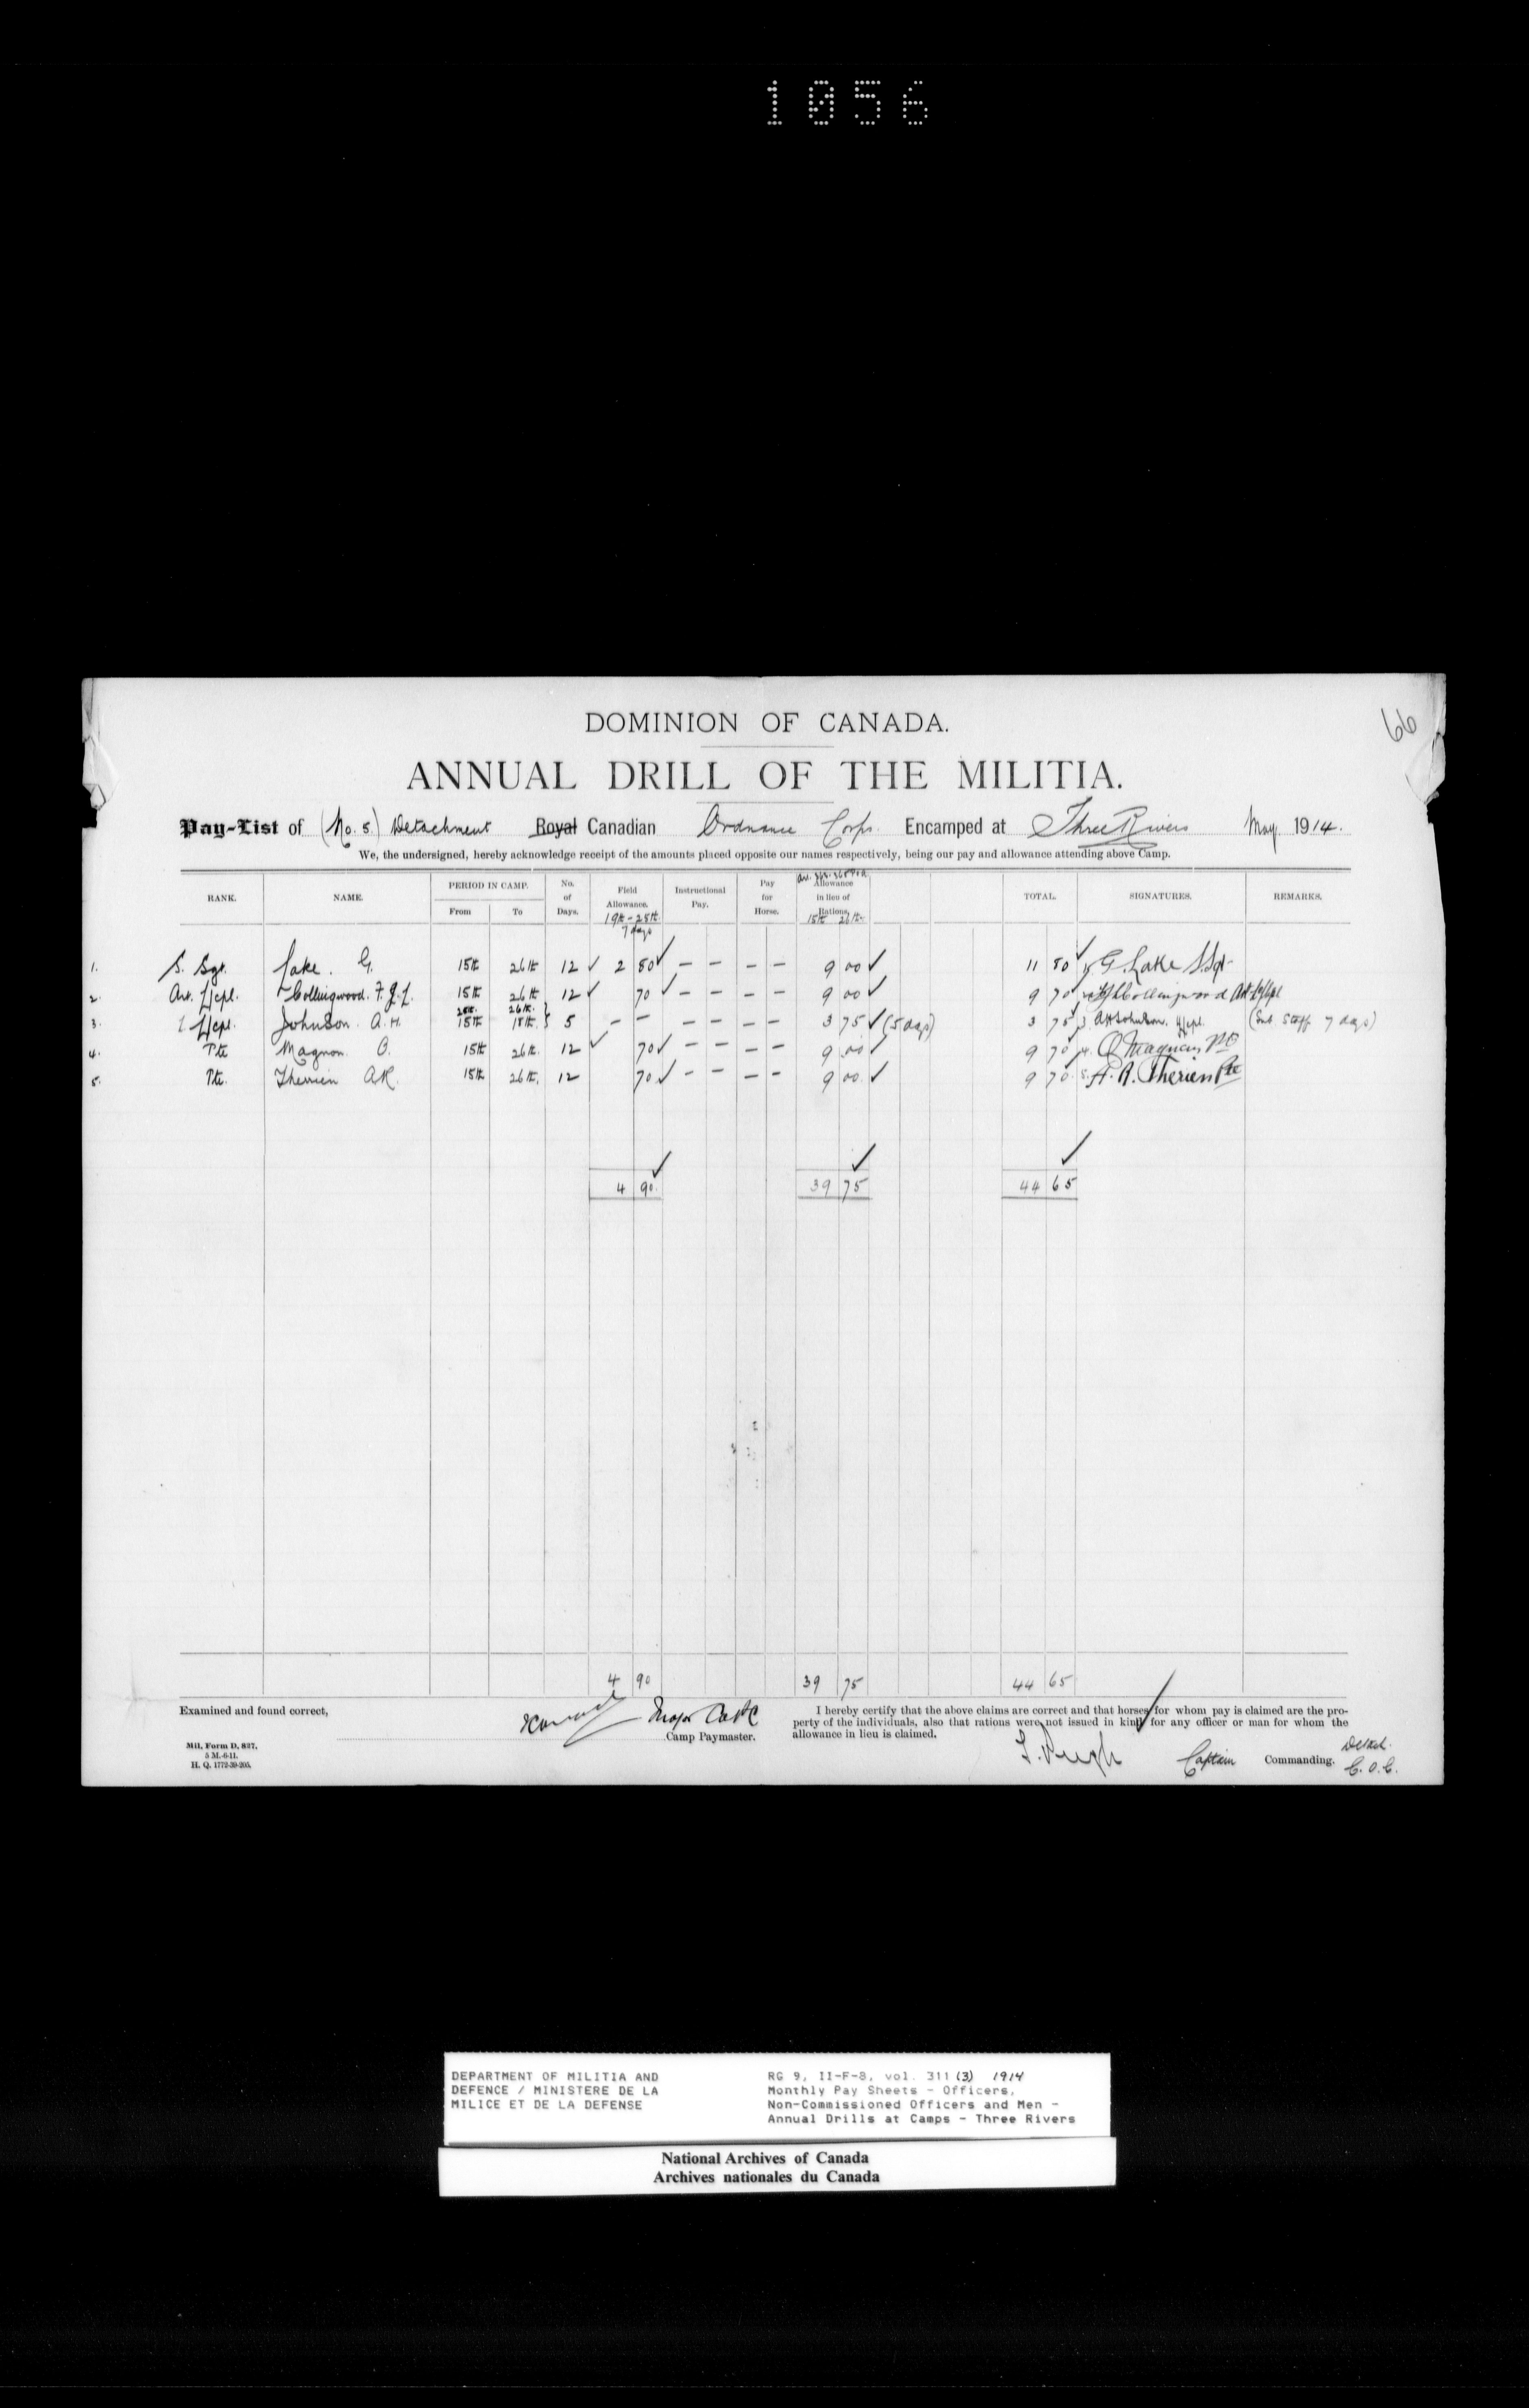 1056
66
DOMINION OF CANADA.
ANNUAL DRILL OF THE MILITIA.
Pay-List of (No. 5.) Detachment Royal Canadian Ordnance Corps. Encamped at Three Rivers May 1914.
We, the undersigned, hereby acknowledge receipt of the amounts placed opposite our names respectively, being our pay and allowance attending above Camp.
RANK. NAME. PERIOD IN CAMP. From To No. of Days. Field Allowance. 19th - 25th 7 days Instructional Pay. Pay for Horse. Allowance in lieu of Rations. 15th 26th TOTAL. SIGNATURES. REMARKS.
1. S. Sgt. Lake. G. 15th 26th 12 ✓ 2 80 ✓ — — — — 9 00 ✓ 11 80 ✓ G. Lake S.Sgt
2. L/cpl. Collingwood. F.J.L. 15th 26th 12 ✓ 70 ✓ — — — — 9 00 ✓ 9 70 Collingwood
25th 26th
3. L/cpl. Johnson. A.H. 15th 18th } 5 — — — — — — 3 75 ✓ (5 days) 3 75 3. AH Johnson. L/cpl. (Sub Staff 7 days)
4. Pte Magnon O. 15th 26th 12 ✓ 70 ✓ — — — — 9 00 ✓ 9 70 4. O Magnan Pte
5. Pte. Therrien AR. 15th 26th 12 70 ✓ — — — — 9 00 ✓ 9 70 5. A. R. Therien Pte
4 90. 39 75 44 65
4 90 39 75 44 65
Examined and found correct,
Major
Camp Paymaster.
I hereby certify that the above claims are correct and that horses for whom pay is claimed are the pro-
perty of the individuals, also that rations were not issued in kind for any officer or man for whom the
allowance in lieu is claimed.
Mil. Form D. 827.
5 M.-6-11.
H. Q. 1772-39-205.
Pugh Captain Commanding. Detach. C.O.C.
DEPARTMENT OF MILITIA AND
DEFENCE / MINISTERE DE LA
MILICE ET DE LA DEFENSE
RG 9, II-F-8, vol. 311 (3) 1914
Monthly Pay Sheets - Officers,
Non-Commissioned Officers and Men -
Annual Drills at Camps - Three Rivers
National Archives of Canada
Archives nationales du Canada